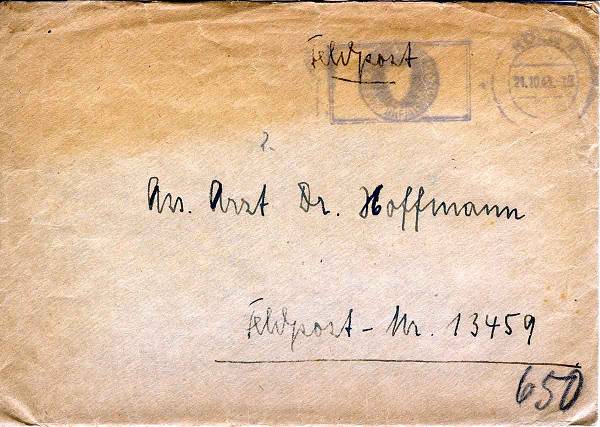 Feldpost
21.10.43
2.
Ass. Arzt Dr. Hoffmann
Feldpost-Nr. 13459
650